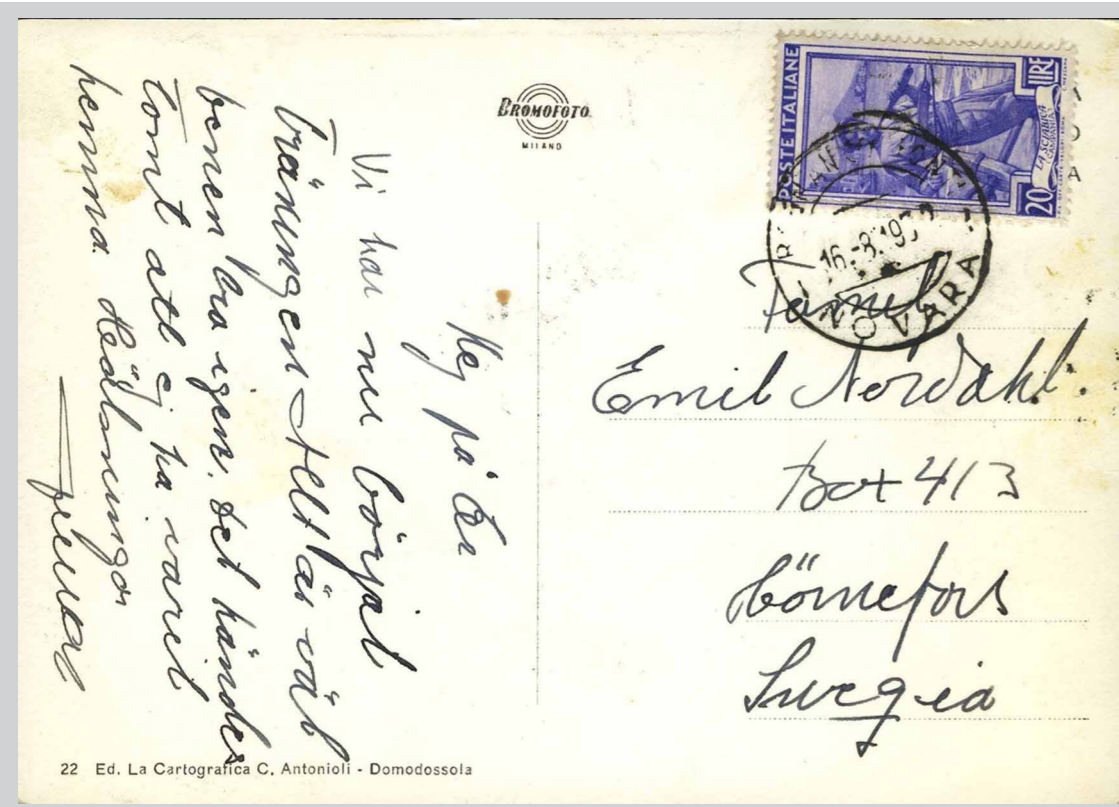 BROMOFOTO
MILANO
POSTE ITALIANE
LIRE
20
LA SCIABICA
CAMPANIA
16.-8.19
NOVARA
Hej på Er
Vi har nu börjat
träningen. Allt är väl
benen bra igen. Det kändes
tomt att ej ha varit
hemma. Hälsningar
Familj
Emil Nordahl.
Box 413
Hörnefors
Svezia
22 Ed. La Cartografica C. Antonioli - Domodossola